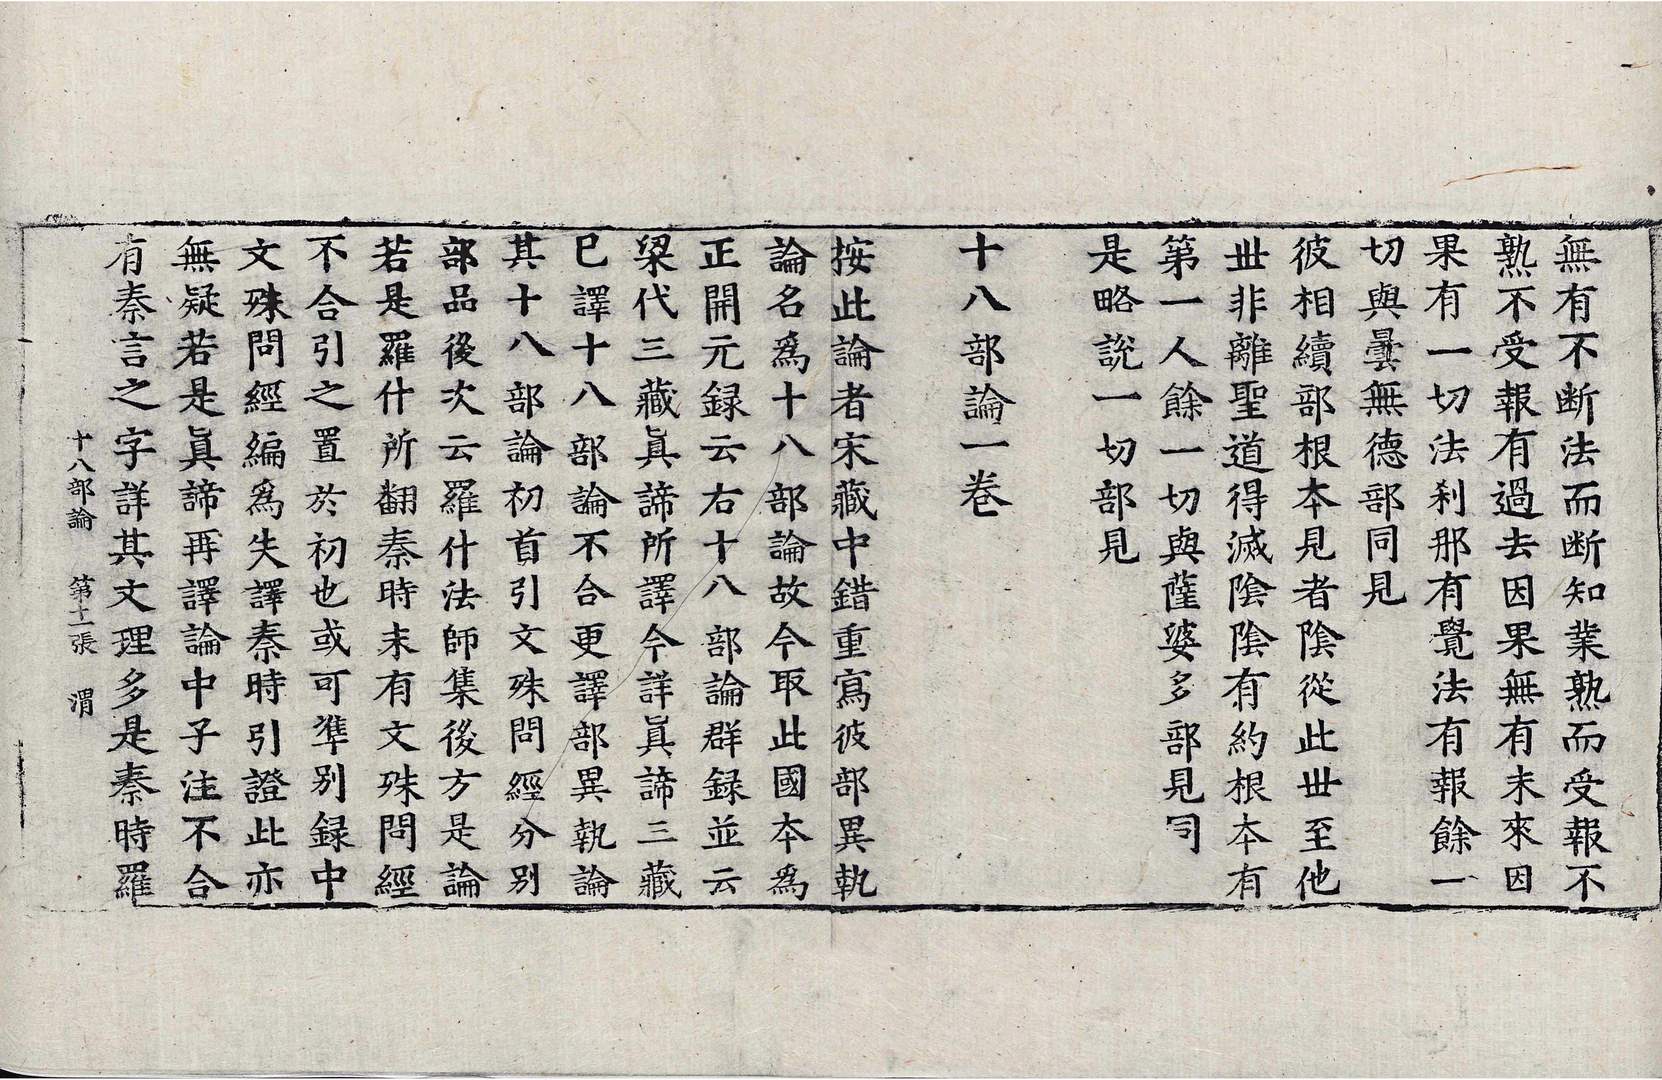 無有不断法而断知業熟而受報不
熟不受報有過去因果無有未來因
果有一切法刹那有覺法有報餘一
切與曇無德部同見
彼相續部根本見者陰從此丗至他
丗非離聖道得滅陰陰有約根本有
第一人餘一切與薩婆多部見同
是略說一切部見
十八部論一卷
按此論者宋藏中錯重寫彼部異執
論名爲十八部論故今取此國本爲
正開元録云右十八部論群録並云
梁代三藏眞諦所譯今詳眞諦三藏
已譯十八部論不合更譯部異執論
其十八部論初首引文殊問經分別
部品後次云羅什法師集後方是論
若是羅什所翻秦時未有文殊問經
不合引之置於初也或可準別録中
文殊問經編爲失譯秦時引證此亦
無疑若是眞諦再譯論中子注不合
有秦言之字詳其文理多是秦時羅
十八部論 第十一張 渭